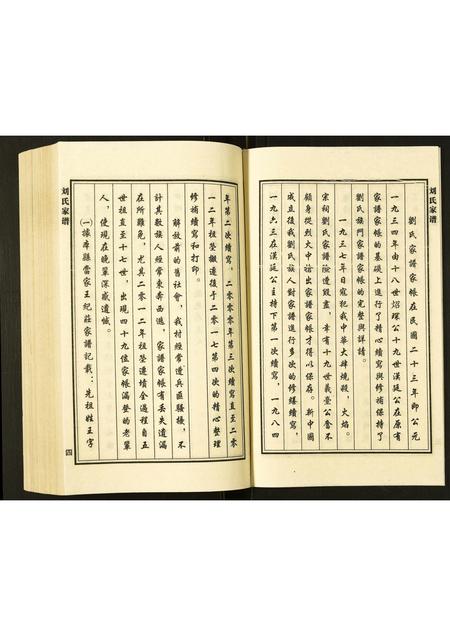 刘氏家谱
劉氏家譜家帳在民國二十三年即公元
一九三四年由十八世炤琛公十九世漢廷公在原有
家譜家帳的基礎上進行了精心續寫與修補保持了
劉氏族門家譜家帳的完整與詳請。
一九三七年日寇犯我中華大肆燒殺，火焰。
宗祠劉氏家譜險遭毀盡，幸有十九世義堂公奮不
顧身從烈火中捨出家譜家帳才得以保存。新中國
成立後我劉氏族人對家譜進行多次的修繕續寫，
一九六三在漢廷公主持下第一次續寫，一九八四
年第二次續寫，二零零零年第三次續寫直至二零
一二年祖塋搬遷後于二零一七第四次的精心整理
修補續寫和打印。
解放前的舊社會，我村經常遭兵匪騷擾，不
計其數族人經常東奔西逃，家譜家帳有丟失遺漏
在所難免，尤其二零一二年祖塋遷墳全過程自五
世祖直至十七世，出現四十九位家帳漏登的老輩
人，使現在晚輩深感遺憾。
㈠據庠縣當家王紀莊家譜記載：先祖姓王字
刘氏家谱
四